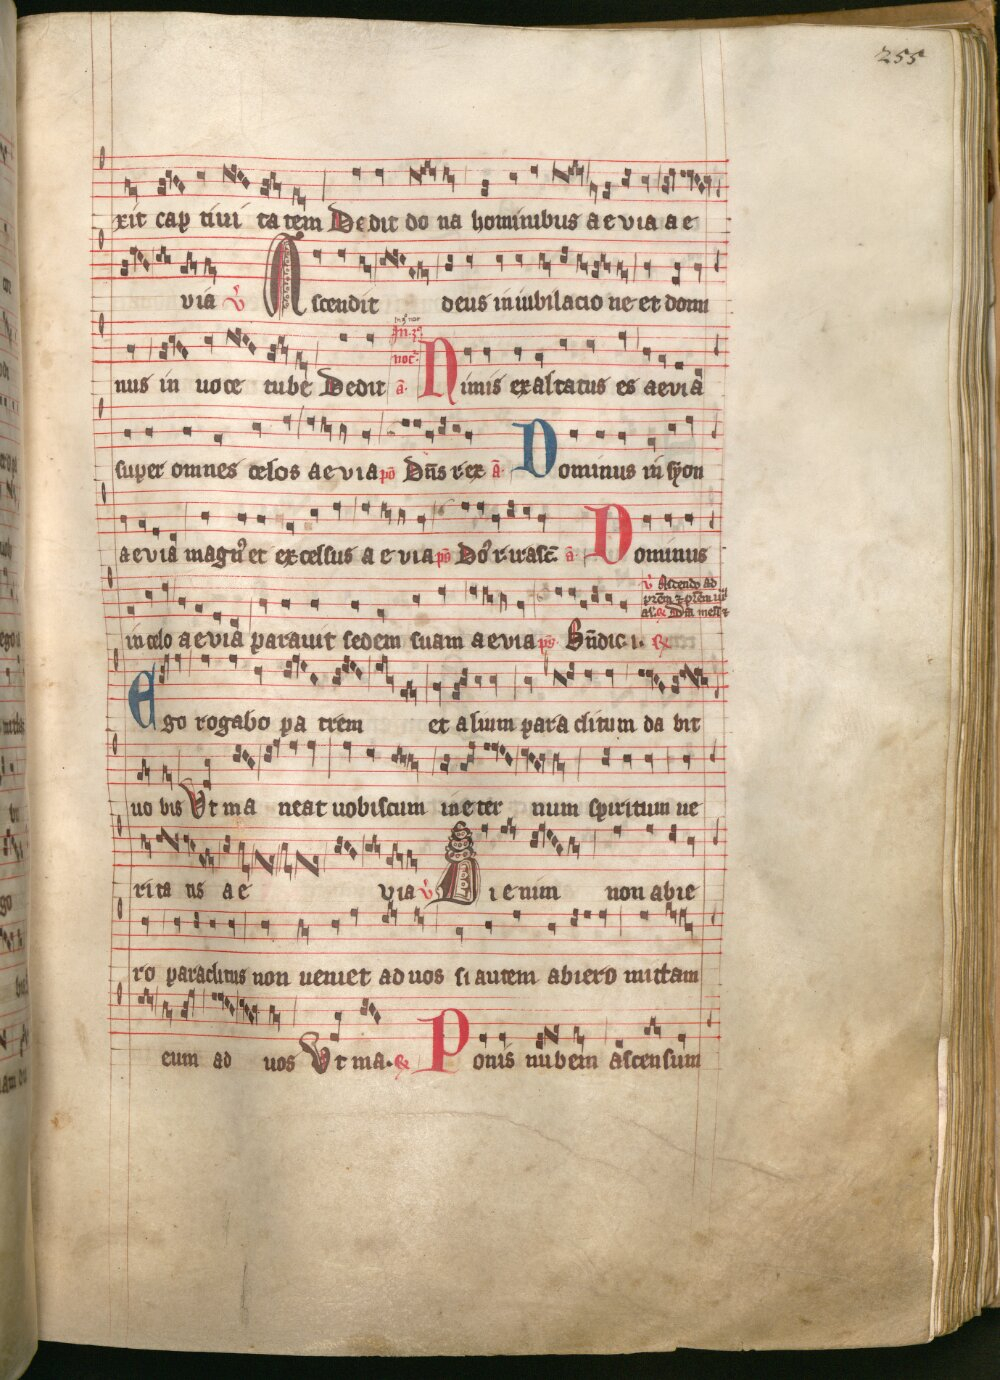 255
xit cap tiui ta tem Dedit do na hominibus a e via a e
via v̄ Ascendit deus in iubilacio ne et domi
nus in uoce tube Dedit ā Nimis exaltatus es aevia
In .3.
noc̄.
super omnes celos a e v i a pō Dn̄s r ex ā Dominus in syon
aevia magn᷑ et excelsus a e via ps̄ Do᷑ r. irasc̄. ā Dominus
v̄ Ascendo ad
in celo a e via parauit sedem suam a e via ps̄ Bn̄dic. i. R
Ego rogabo pa trem et alium para clitum da bit
uo bis Vt ma neat uobiscum in e ter num spiritum ue
rita tis a e via v̄ Si e nim non abie
ro paraclitus non ueniet ad uos si autem abiero mittam
eum ad uos Vt ma. R Ponis nubem ascensum